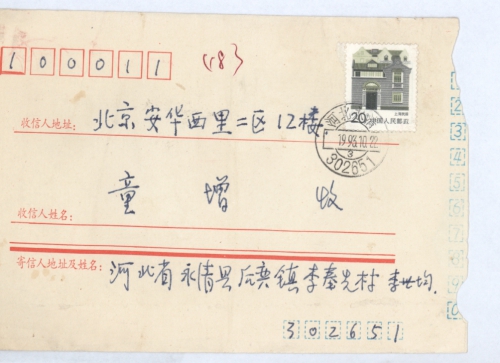 100011
(18)
收信人地址: 北京安华西里二区12楼
收信人姓名: 童增 收
寄信人地址及姓名: 河北省永清县后奕镇李奉先村 李世均.
302651
20 中国人民邮政
上海民居
河北
1993.10.22
a
302651
1
2
3
4
5
6
7
8
9
0